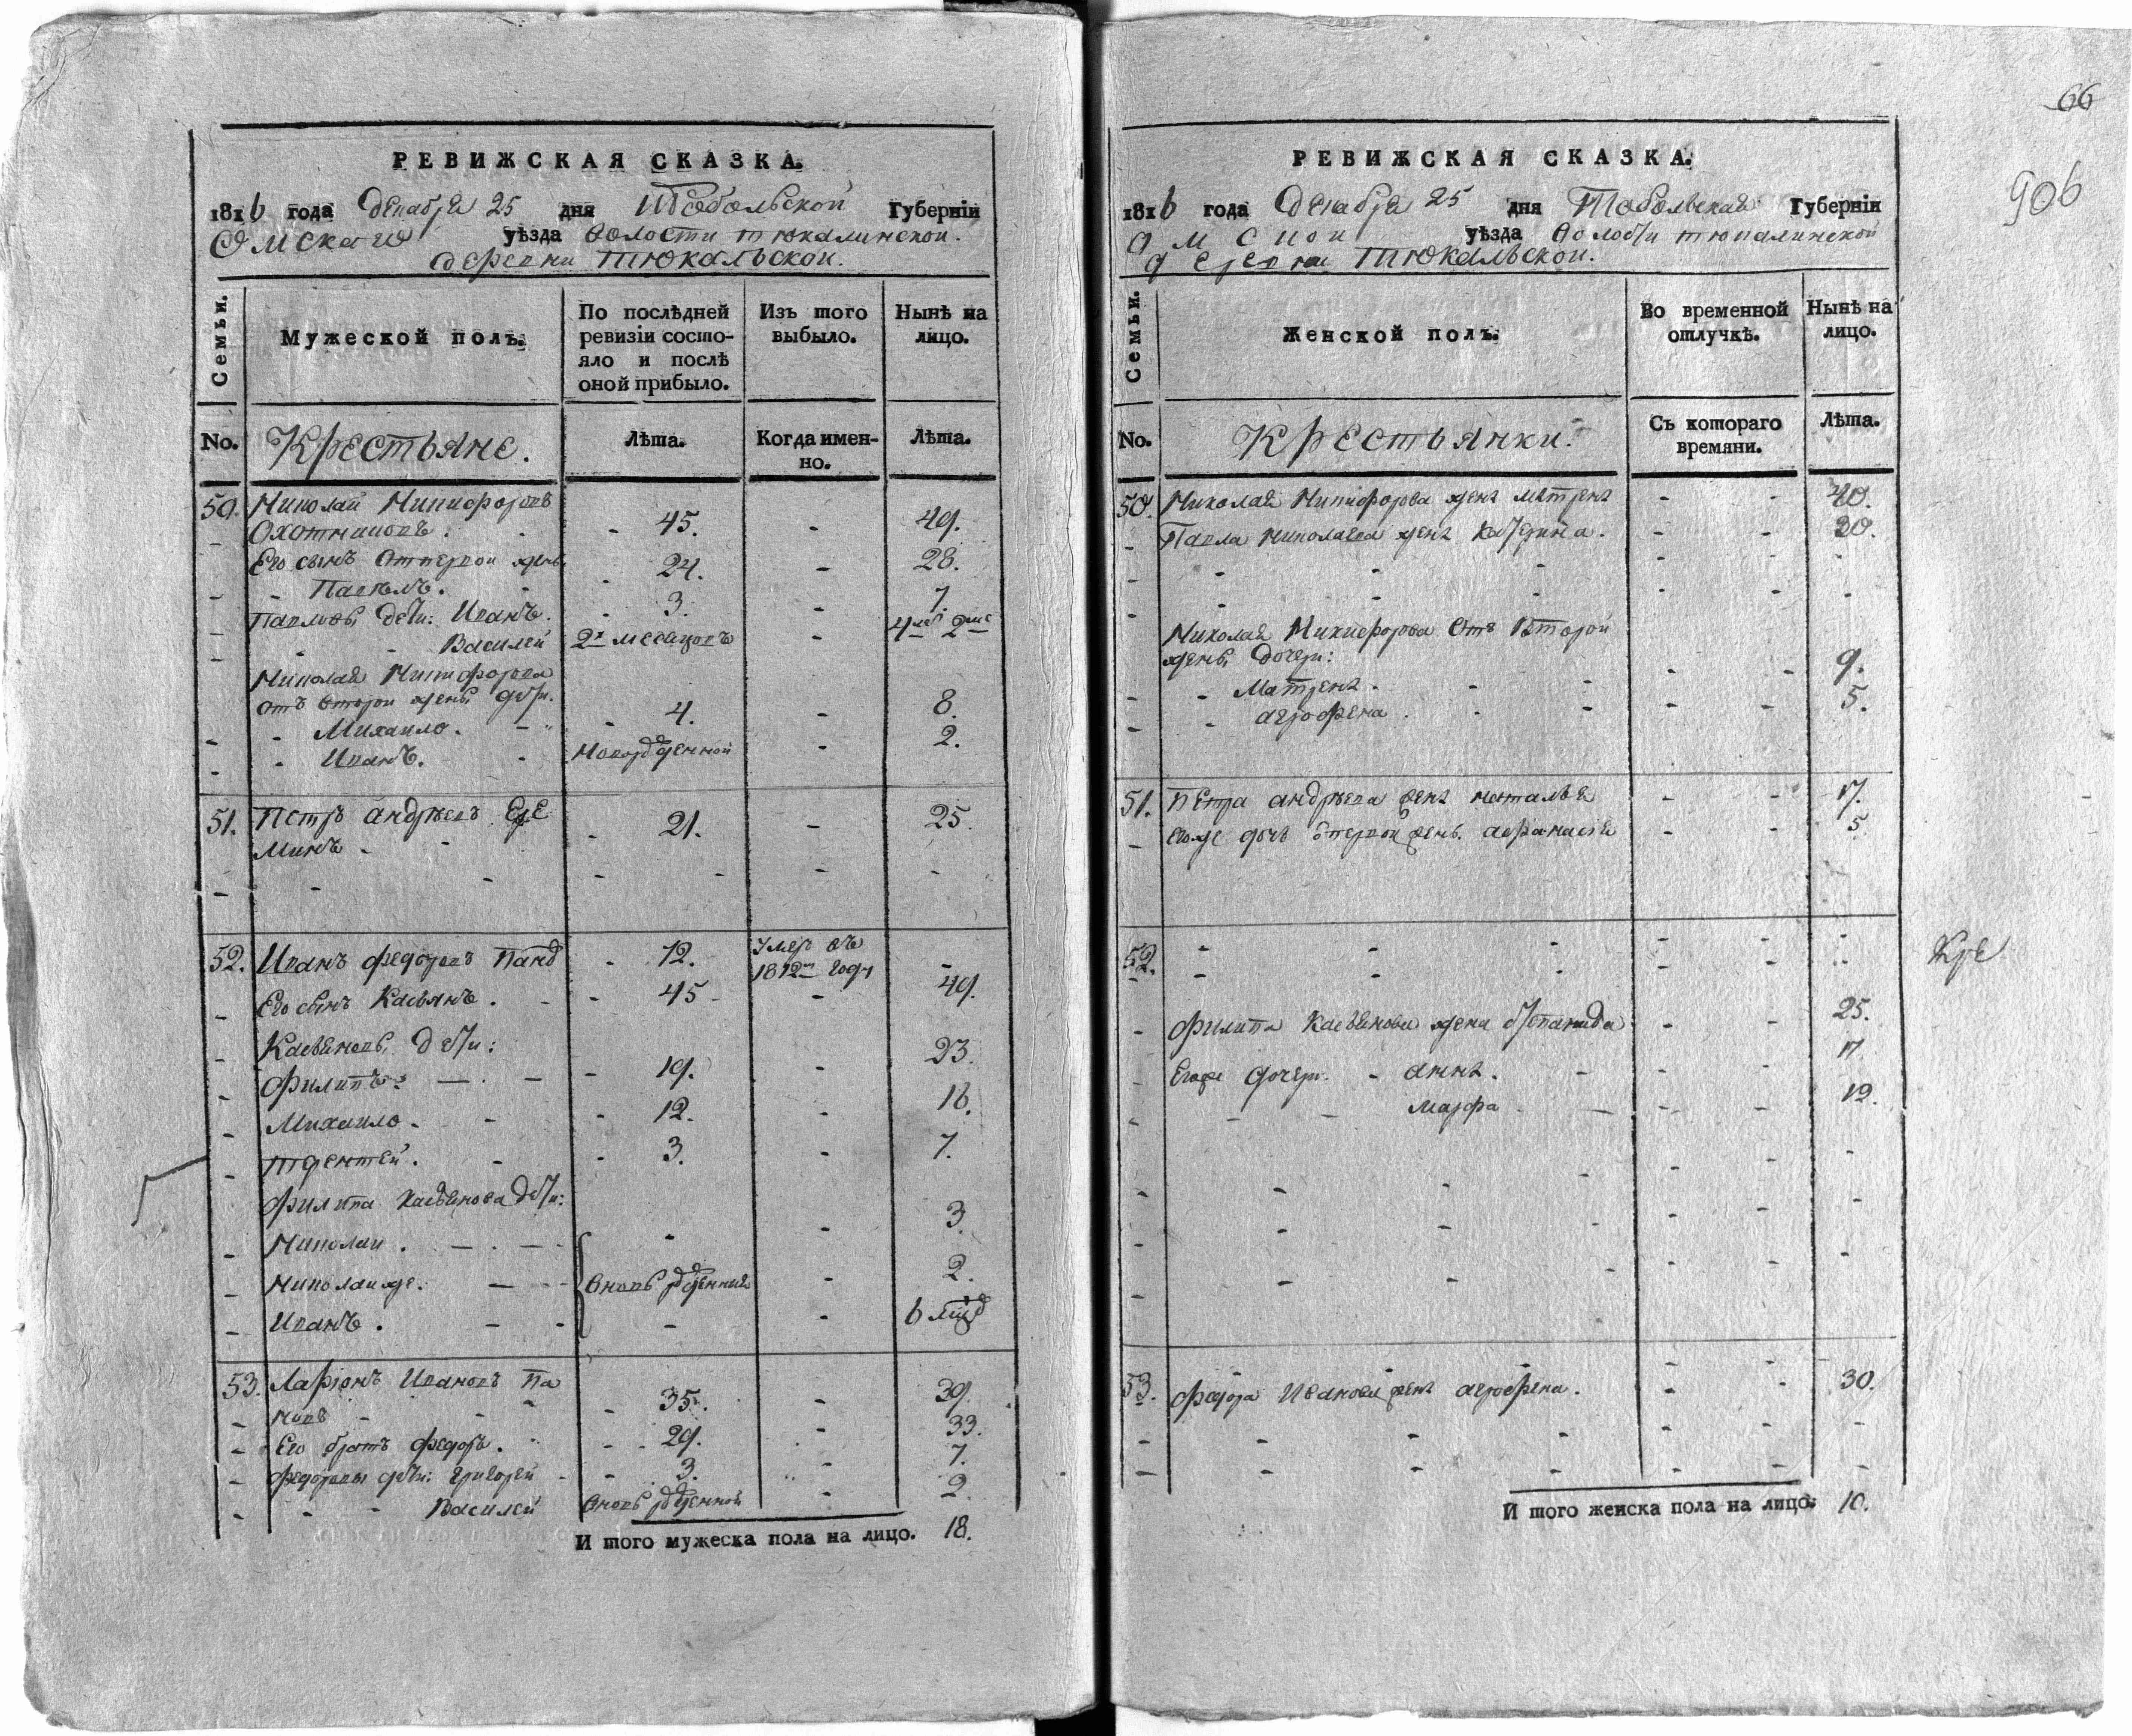 РЕВИЖСКАЯ СКАЗКА.
1816 года Декабря 25 дня Тобольской Губерніи
Омскаго уѣзда волости тюкалинской.
деревни тюкальской.
Семьи.
Мужеской полъ.
По послѣдней ревизіи состо-
яло и послѣ
оной прибыло.
Изъ того выбыло.
Нынѣ на лицо.
No.
Крестьяне.
Лѣта.
Когда имен-
но.
Лѣта.
50. Николай Никифоровъ
Охотниковъ: 45. 49.
Его сынъ отпервой жены
Павелъ. 24. 28.
Павловы дети: Иванъ. 3. 7.
Василей 2х месецовъ 4 лет 2 ме
Николая Никифорова
отъ второй жены дети.
Михаило. 4. 8.
Иванъ. Новорожденной 2.
51. Петръ андреевъ Ере
минъ 21. 25.
52. Иванъ федоровъ Пано 12. Умер въ
1812м году
Его сынъ Касьянъ. 45 49.
Касьяновы Дети:
Филипъ: 19. 23.
Михаило. 12. 16.
3. 7.
Филипа Касьянова Дети:
Николаи. 3.
Николаиже. вновь рожденныя 2.
Иванъ. 6
53. Ларіонъ Ивановъ Па
новъ 35. 39.
Его братъ федоръ. 29. 33.
федоровы дети: григорей 3. 7.
Василей вновь рожденной 2.
И того мужеска пола на лицо. 18.
66
906
РЕВИЖСКАЯ СКАЗКА.
1816 года Декабря 25 дня Тобольская Губерніи
Омской уѣзда волости тюкалинской
деревни тюкальской.
Семьи.
Женской полъ.
Во временной
отлучкѣ.
Нынѣ на
лицо.
No.
Крестьянки.
Съ котораго
времяни.
Лѣта.
50. Николая Никифорова жена матрена 40.
Павла николаева жена катерина. 20.
Николая Никифорова Отъ Второй
жены дочери:
Матрена. 9.
агрофена. 5.
51. Петра андреева жена наталья 17.
Егоже дочь отпервой жены. афанасія 5.
52.
Филипа Касьянова жена степанида 25.
Егоже дочери. анна.
Марфа
53. федора Иванова жена агрофена. 30.
И того женска пола на лицо: 10.
Кре